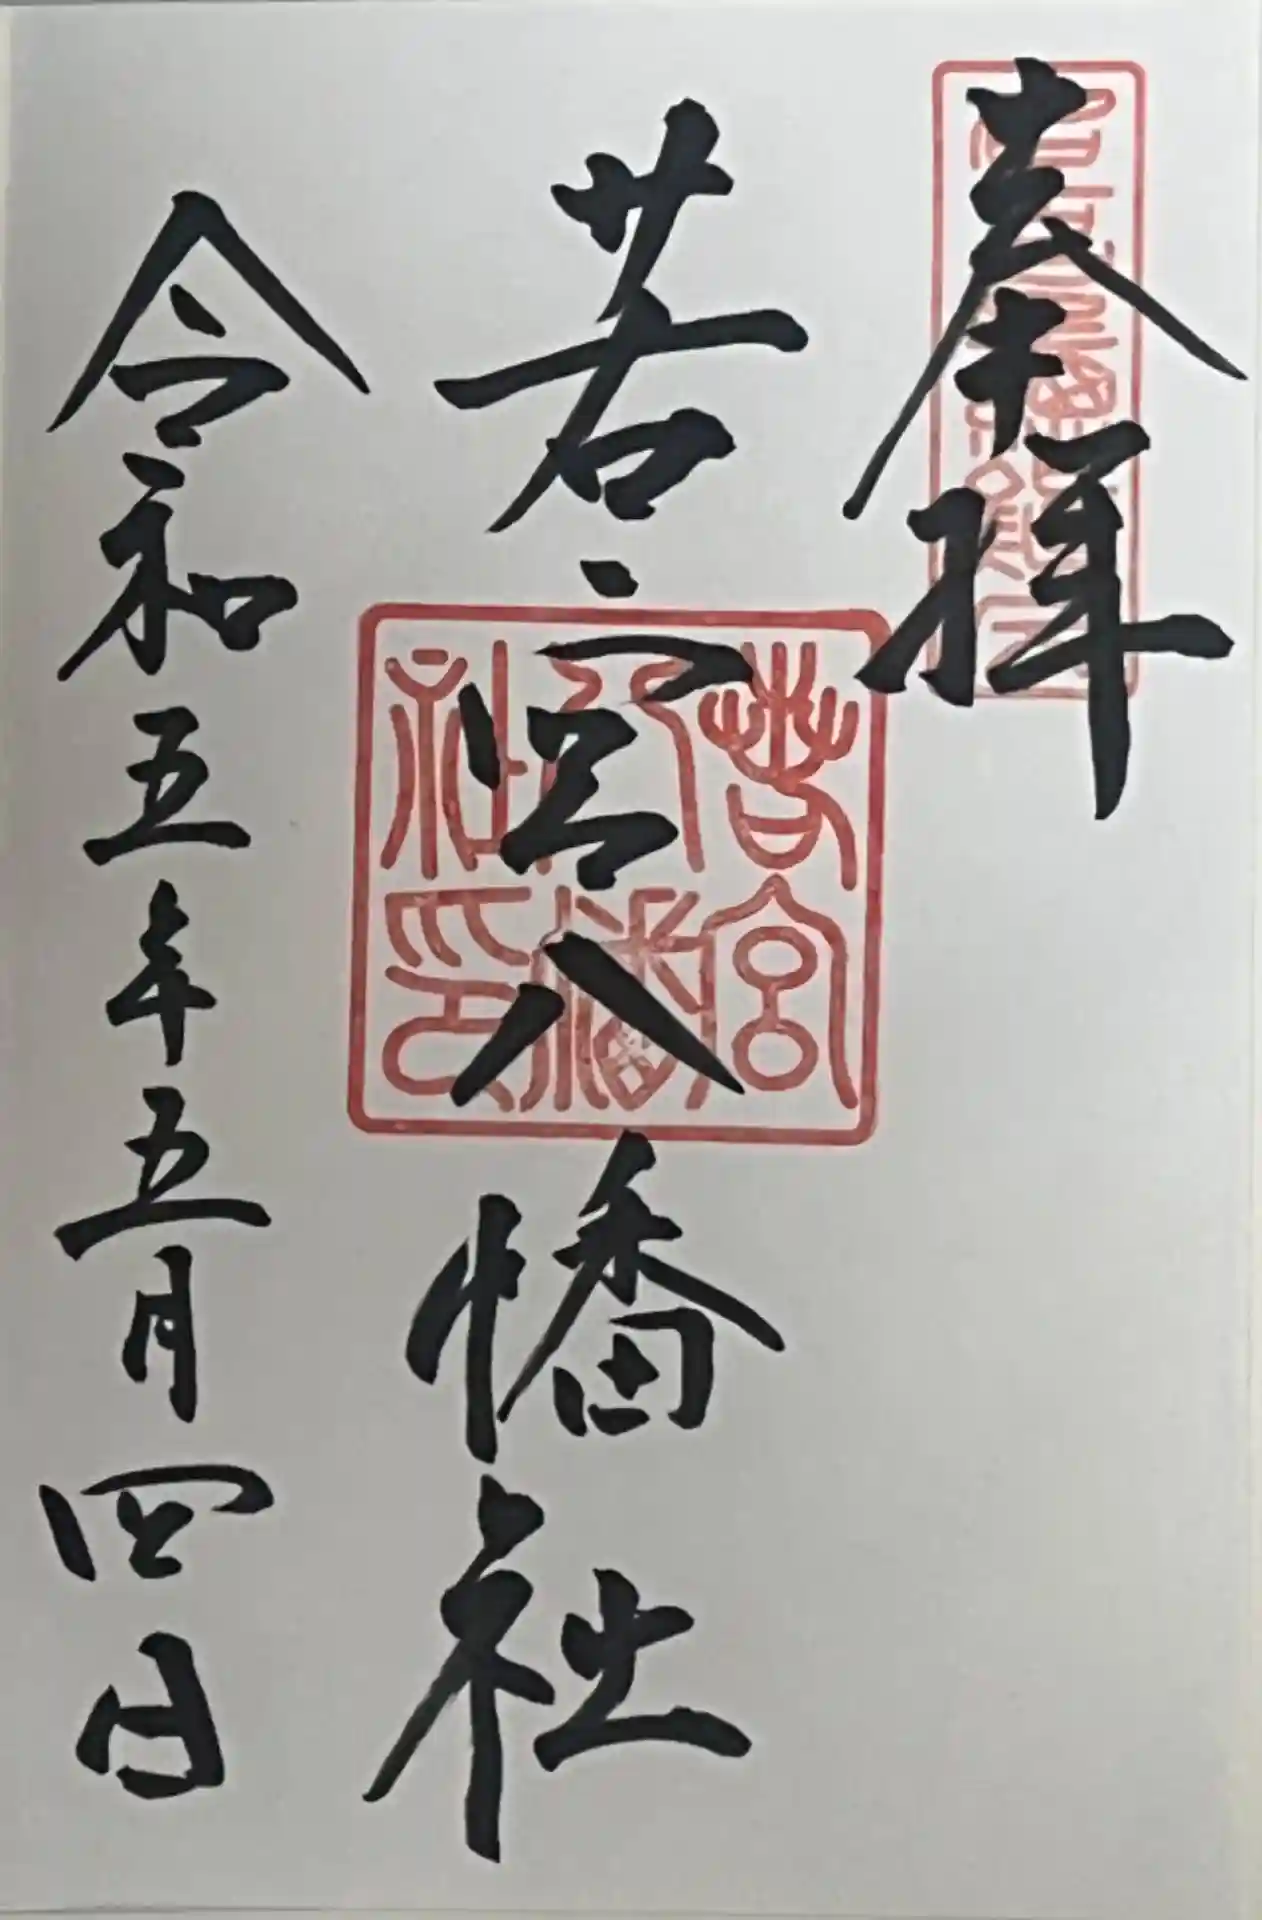 奉拝
若宮八幡社
若宮八幡社印
令和五年五月四日